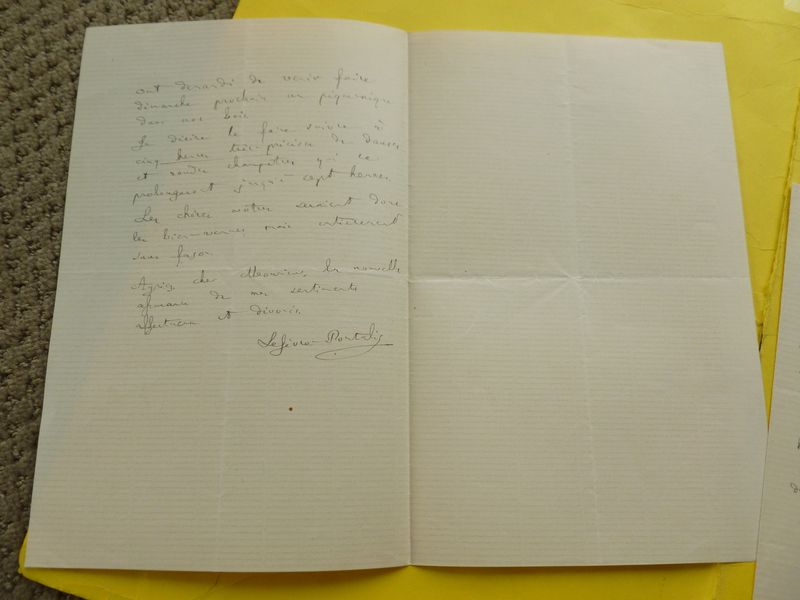 ont demandé de venir faire
dimanche prochain un piquenique
dans nos bois.
Je désire le faire suivre à
cinq heures très-précises de danses
et rondes champêtres qui se
prolongeront jusqu'à sept heures.
Les chères vôtres seraient donc
les bien-venues, mais entièrement
sans façon.
Agréez, cher Monsieur, la nouvelle
de mes sentiments
affectueux et dévoués.
Lefèvre-Pontalis